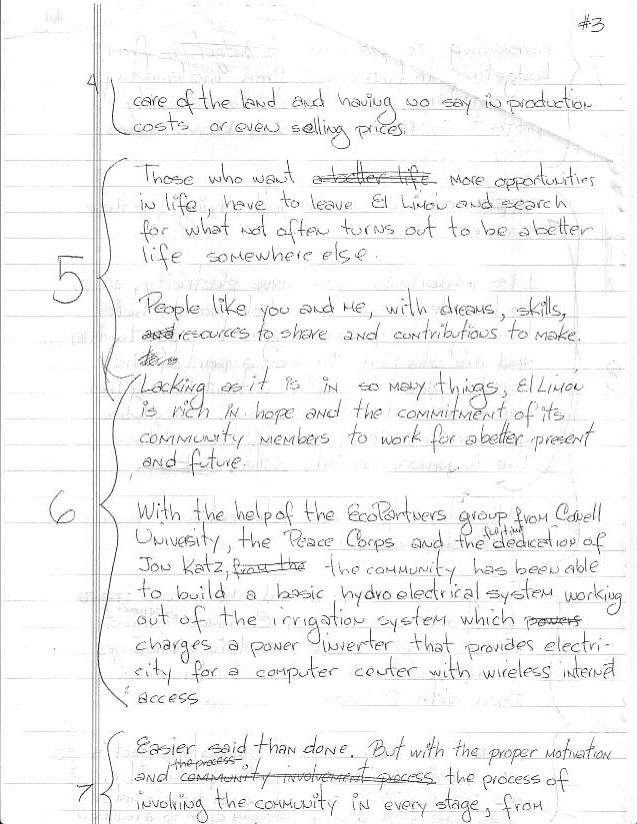 #3
4 care of the land and having no say in production
costs or even selling prices.
Those who want a better life more opportunities
in life, have to leave El Limón and search
for what not often turns out to be a better
life somewhere else.
5
People like you and me, with dreams, skills,
and resources to share and contributions to make.
Lacking as it is in so many things, El Limón
is rich in hope and the commitment of its
community members to work for a better present
and future.
6 With the help of the EcoPartners group from Cornell
full time
University, the Peace Corps and the dedication of
Jon Katz, from the the community has been able
to build a basic hydroelectrical system working
out of the irrigation system which powers
charges a power inverter that provides electri-
city for a computer center with wireless internet
access
Easier said than done. But with the proper motivation
the process
and community involvement process the process of
7 involving the community in every stage, from